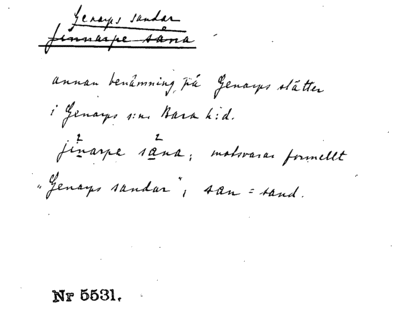 Genarps sandar
jinnarpe sana
annan benämning på Genarps slätter
i Genarps s:n Bara h:d.
jinarpe sana; motsvaras formellt
"Genarps sandar", san = sand.
Nr 5531.